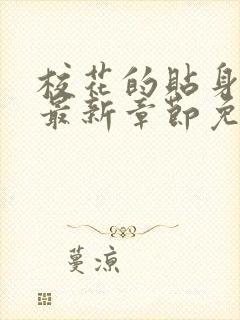 校花的贴身
最新章节免
蔓凉